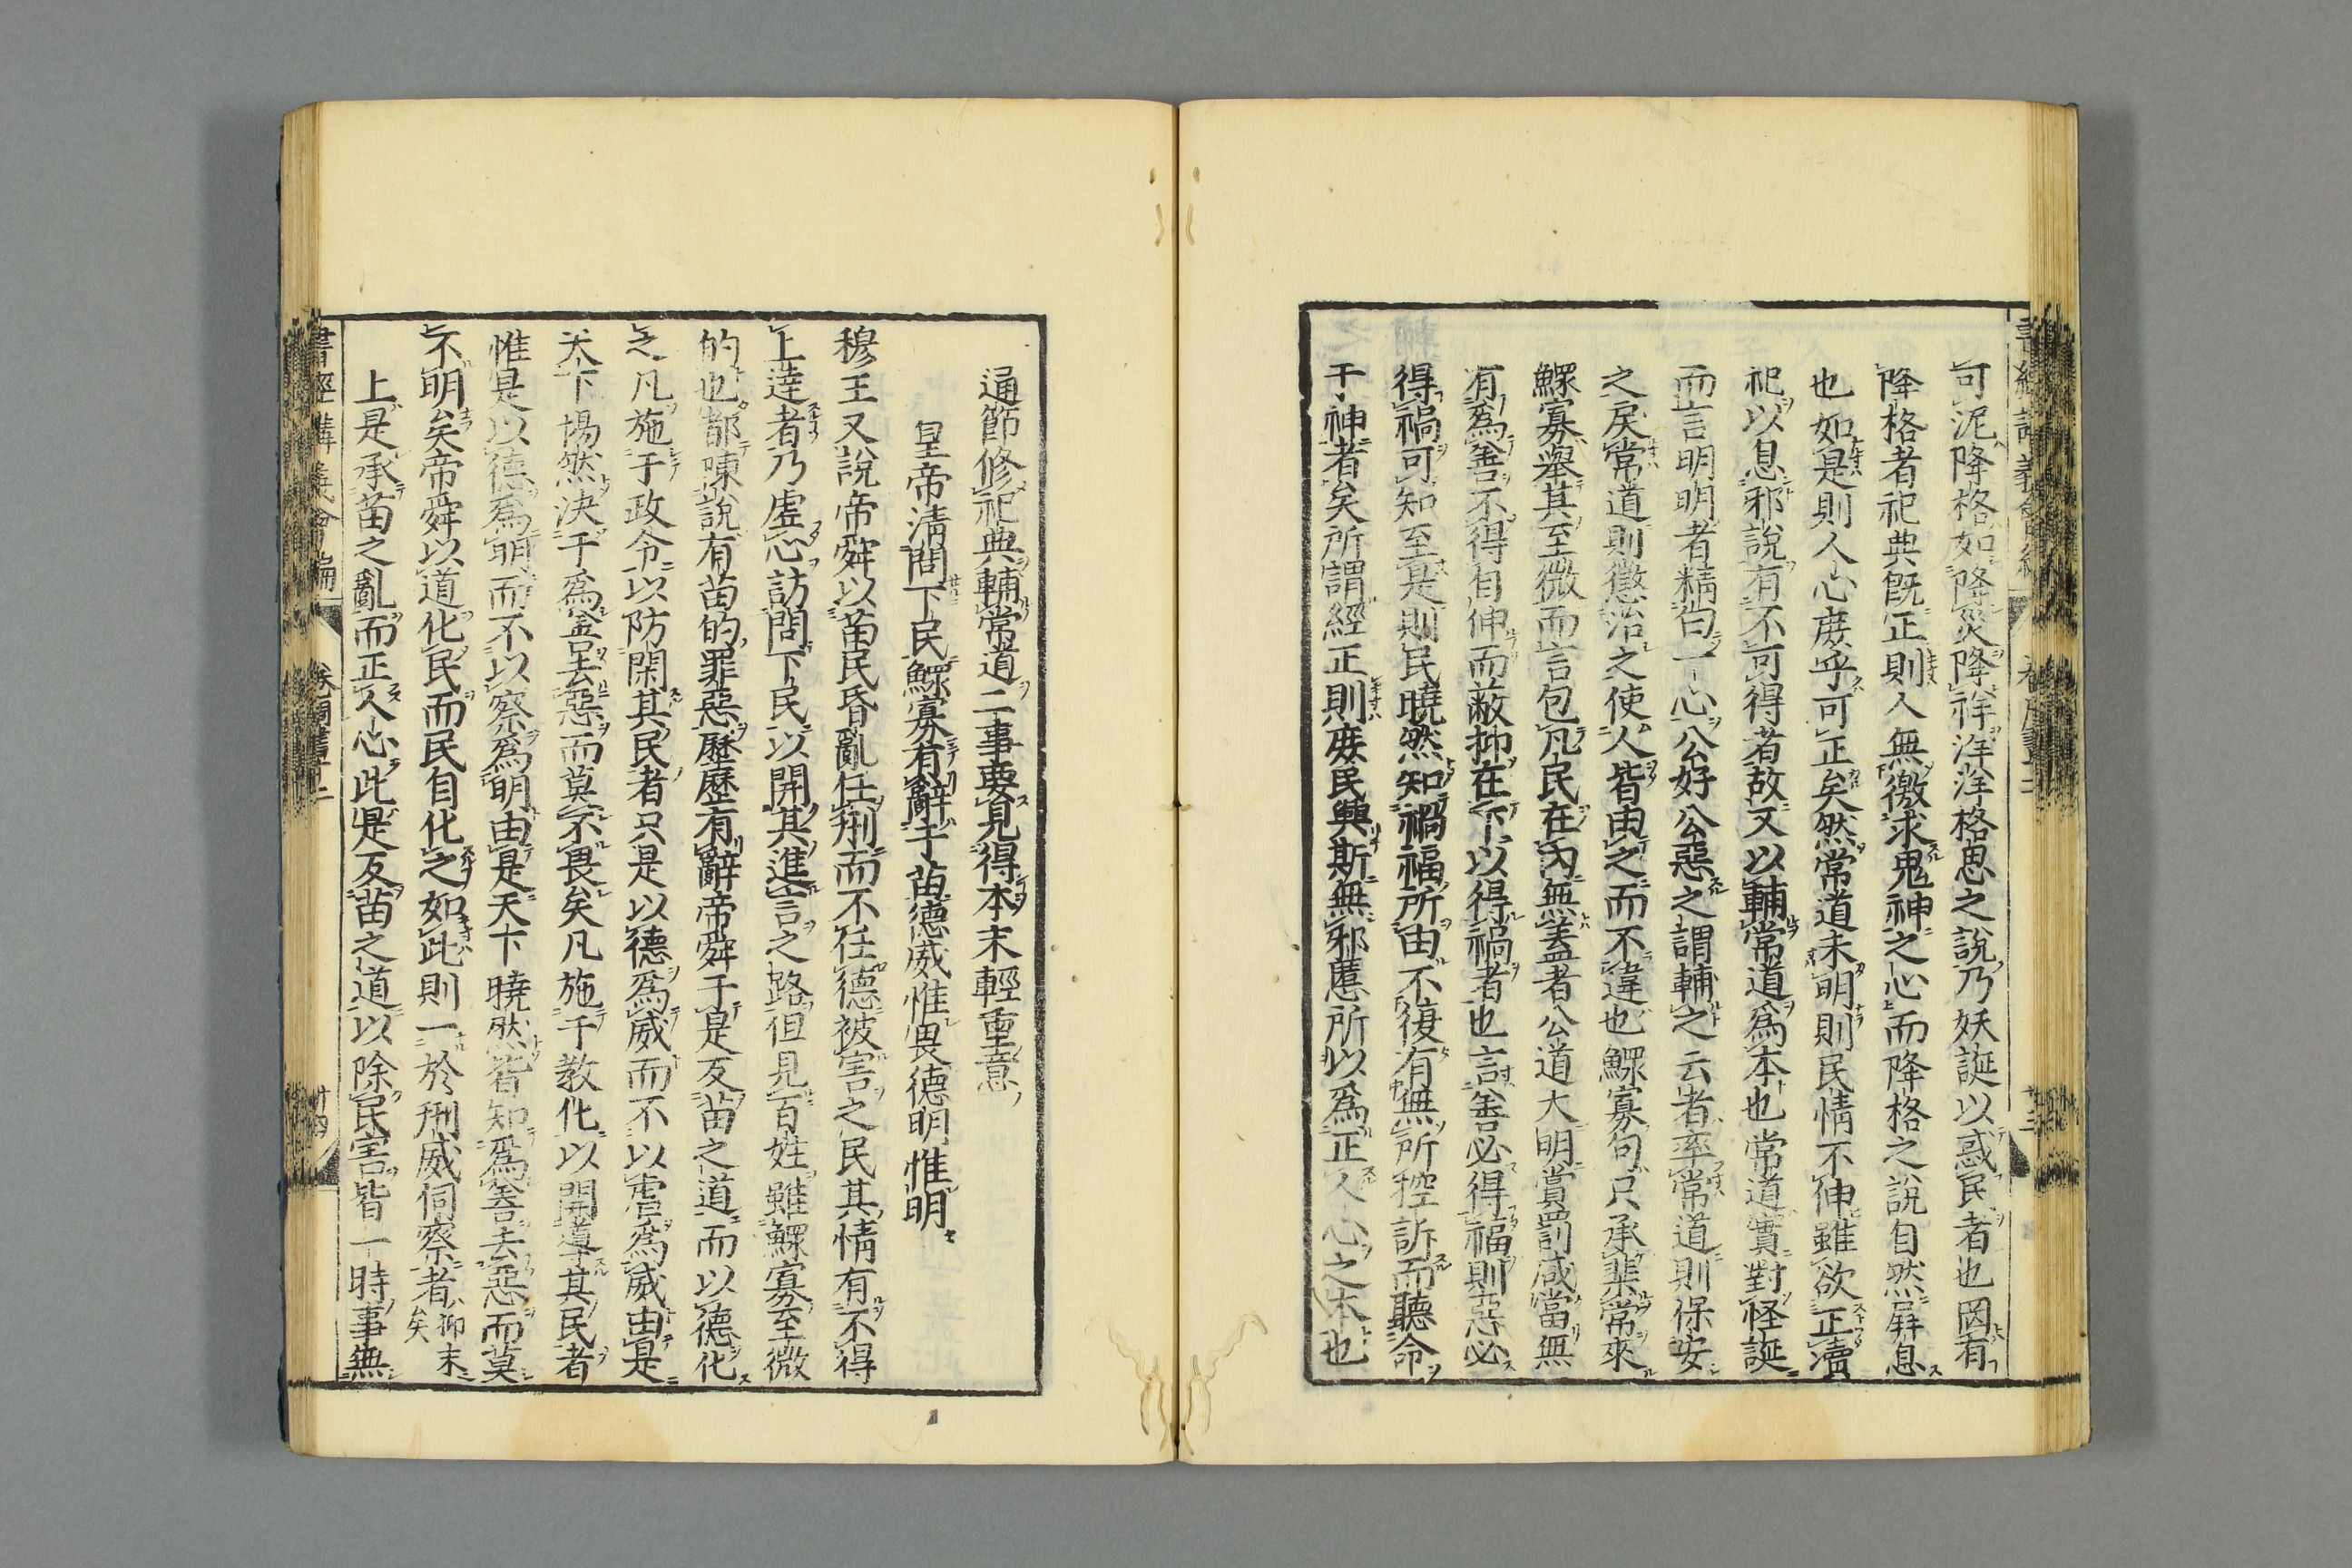 可泥降格如降災降祥洋洋格思之說乃妖誕以惑民者也罔有
降格者祀典既正則人無徼求鬼神之心而降格之說自然屏息
也如是則人心庶乎可正矣然常道未明則民情不伸雖欲正瀆
祀以息邪說有不可得者故又以輔常道爲本也常道實對怪誕
而言明明者精白一心公好公惡之謂輔之云者率常道則保安
之戾常道則懲治之使人皆由之而不違也鰥寡句只承棐常來
鰥寡舉其至微而言包凡民在內無蓋者公道大明賞罰咸當無
有爲善不得自伸而蔽抑在下以得禍者也言善必得福則惡必
得禍可知至是則民曉然知禍福所由不復有無所控訴而聽命
于神者矣所謂經正則庶民興斯無邪慝所以爲正人心之本也
通節修祀典輔常道二事要見得本末輕重意
皇帝清問下民鰥寡有辭于苗德威惟畏德明惟明
穆王又說帝舜以苗民昏亂任刑而不任德被害之民其情有不得
上達者乃虛心訪問下民以開其進言之路但見百姓雖鰥寡至微
的也都陳說有苗的罪惡歷歷有辭帝舜于是反苗之道而以德化
之凡施于政令以防閑其民者只是以德爲威而不以虐爲威由是
天下惕然決于爲善去惡而莫不畏矣凡施于教化以開導其民者
惟是以德爲明而不以察爲明由是天下曉然皆知爲善去惡而莫
不明矣帝舜以道化民而民自化之如此則一於刑威伺察者抑末矣
上是承苗之亂而正人心此是反苗之道以除民害皆一時事無
書經講義會編
卷周書十二
十四